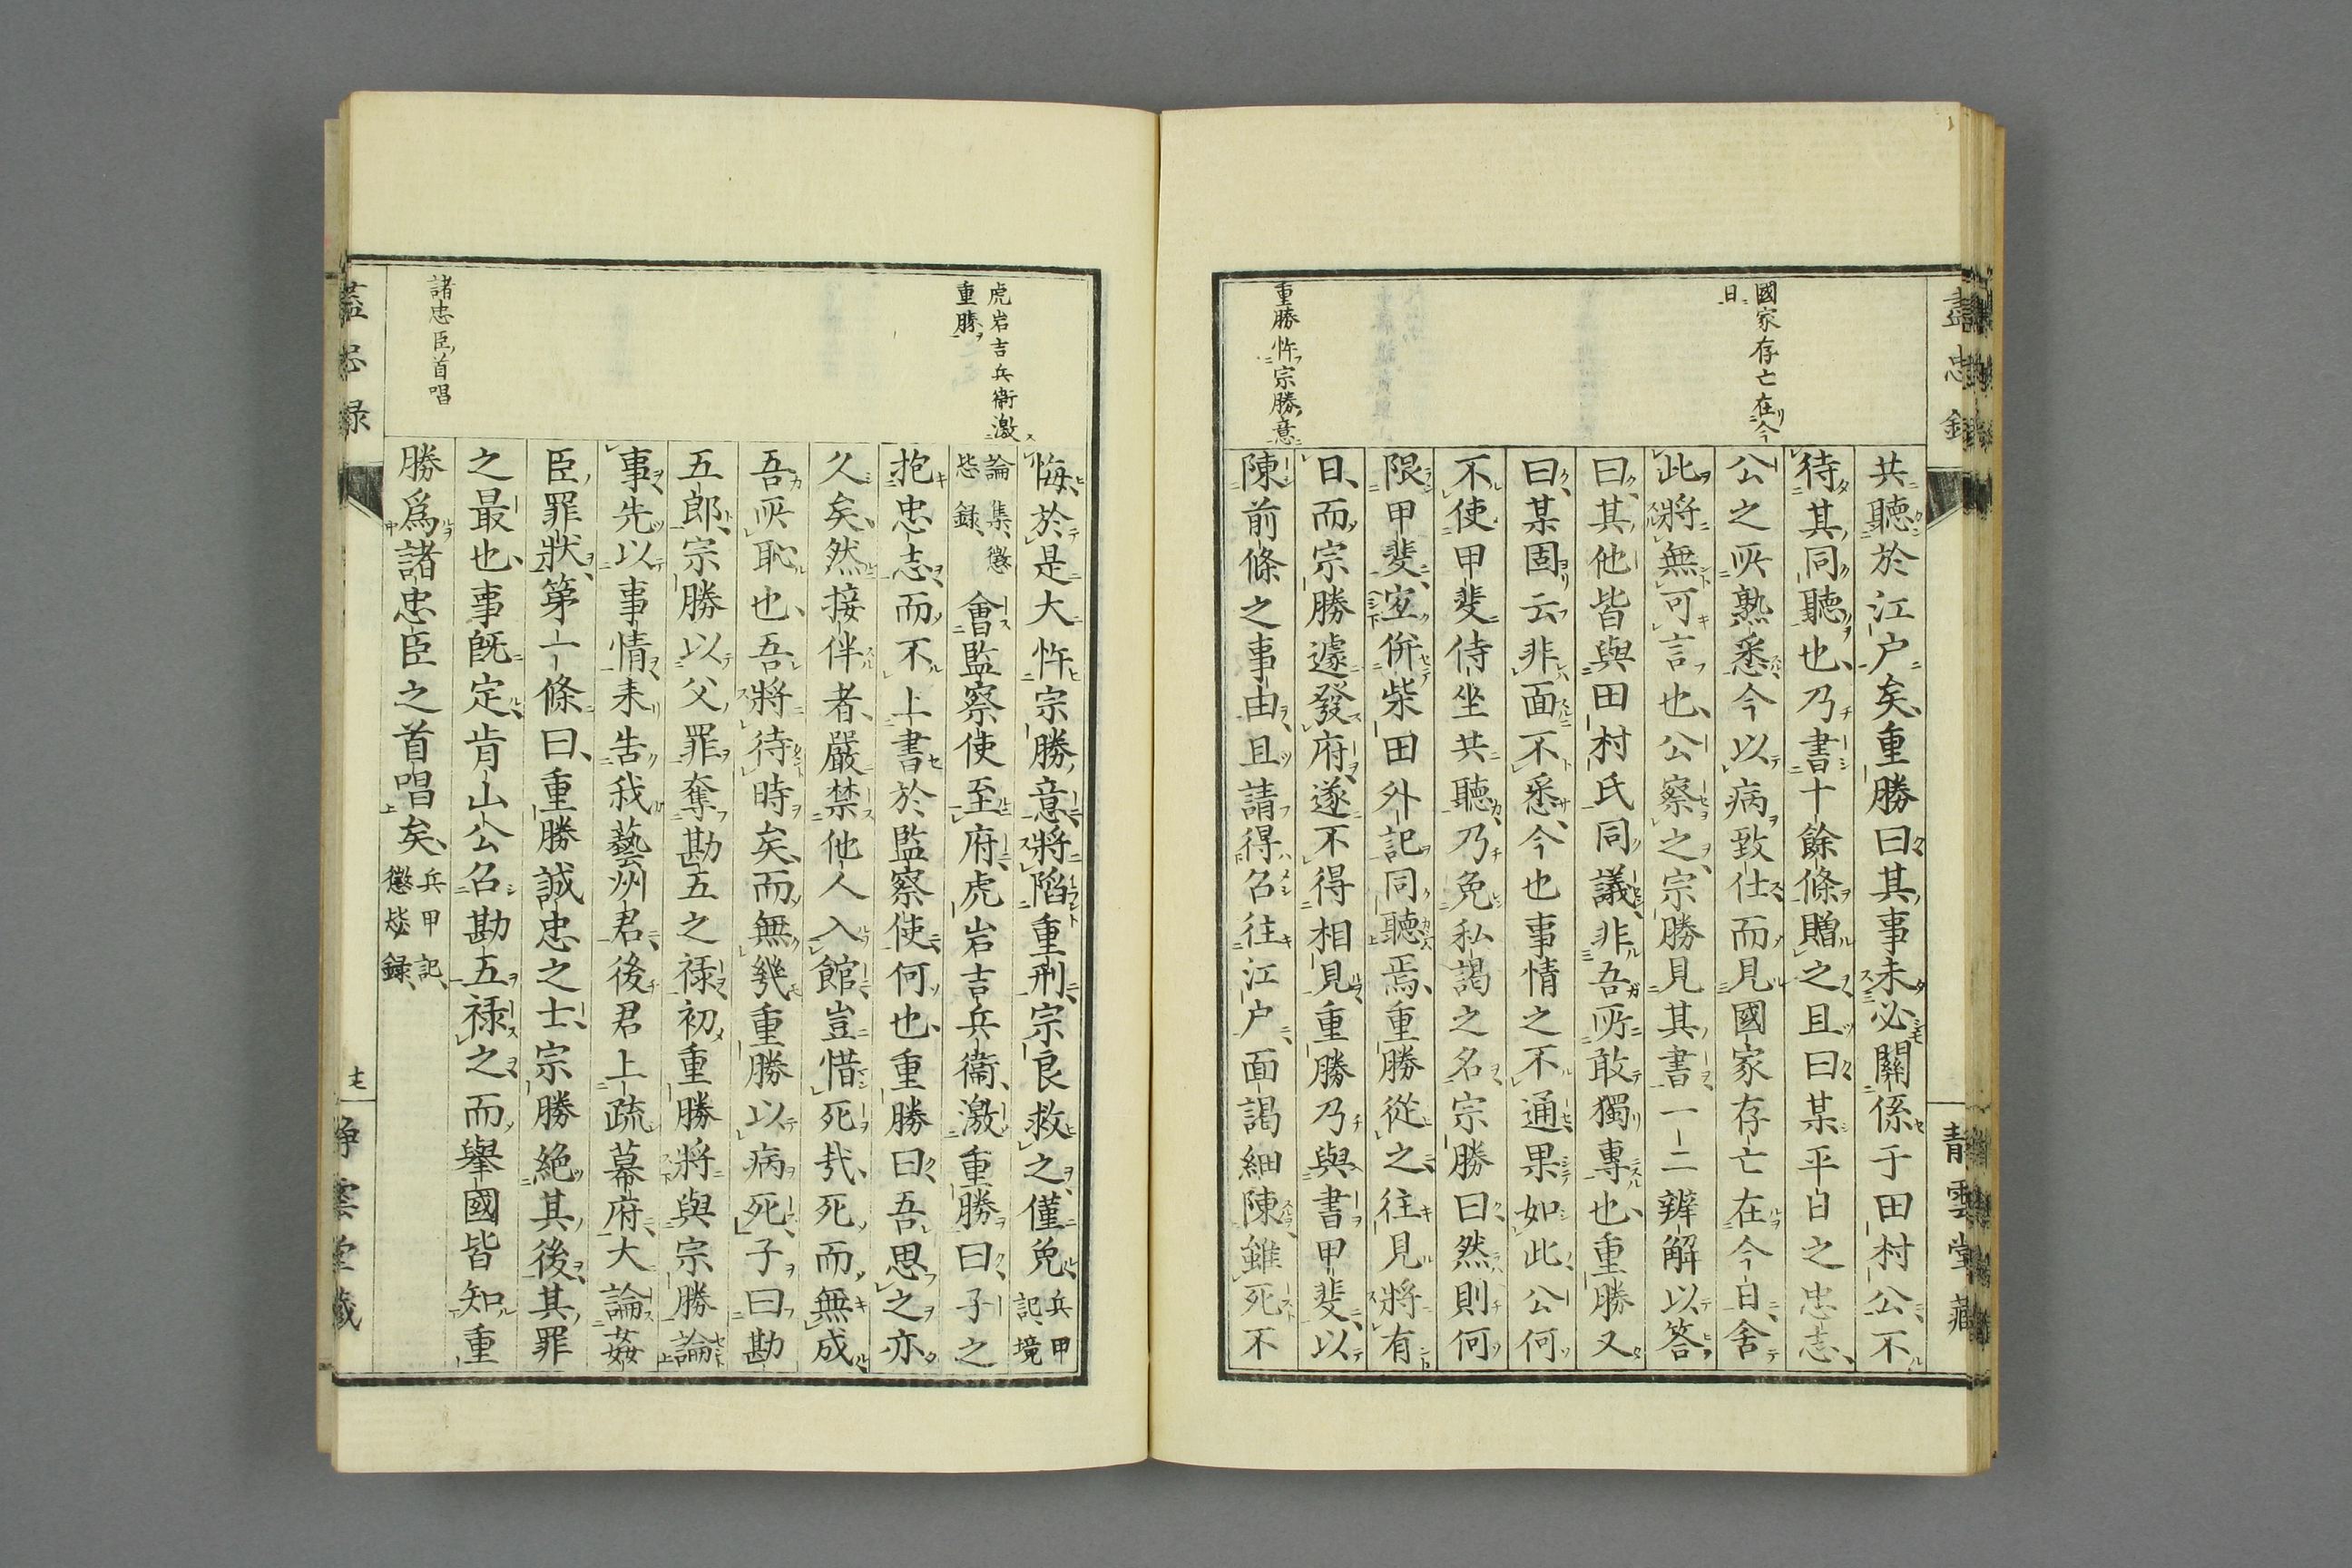 盡忠録
青雲堂藏
國家存亡在今
日
重勝忤宗勝意
共聽於江户矣重勝曰其事未必關係于田村公不
待其同聽也乃書十餘條贈之且曰某平日之忠志
公之所熟悉今以病致仕而見國家存亡在今日舍
此將無可言也公察之宗勝見其書一二辨解以答
曰其他皆與田村氏同議非吾所敢獨專也重勝又
曰某固云非面不悉今也事情之不通果如此公何
不使甲斐侍坐共聽乃免私謁之名宗勝曰然則何
限甲斐宜併柴田外記同聽焉重勝從之往見將有
日而宗勝遽發府遂不得相見重勝乃與書甲斐以
陳前條之事由且請得召往江户面謁細陳雖死不
虎岩吉兵衞激
重勝
諸忠臣首唱
悔於是大忤宗勝意將陷重刑宗良救之僅免兵甲記境
論集懲毖録會監察使至府虎岩吉兵衞激重勝曰子之
抱忠志而不上書於監察使何也重勝曰吾思之亦
久矣然接伴者嚴禁他人入館豈惜死哉死而無成
吾所恥也吾將待時矣而無幾重勝以病死子曰勘
五郎宗勝以父罪奪勘五之禄初重勝將與宗勝論
事先以事情来告我藝州君後君上疏幕府大論姦
臣罪狀第一條曰重勝誠忠之士宗勝絶其後其罪
之最也事既定肯山公召勘五禄之而舉國皆知重
勝爲諸忠臣之首唱矣兵甲記懲毖録
盡忠録
青雲堂藏